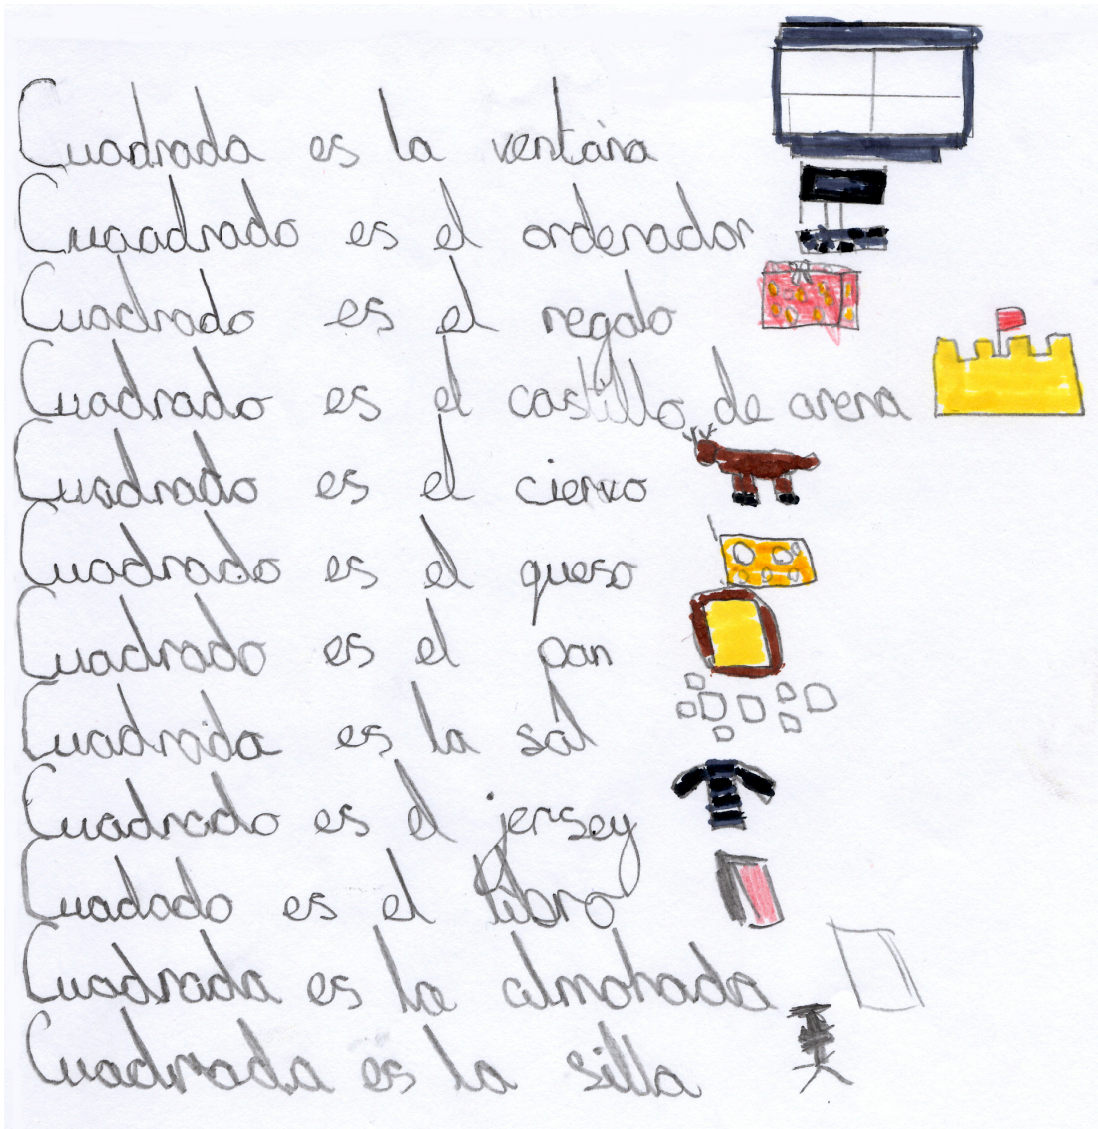 Cuadrada es la ventana
Cuaadrado es el ordenador
Cuadrado es el regalo
Cuadrado es el castillo de arena
Cuadrado es el ciervo
Cuadrado es el queso
Cuadrado es el pan
Cuadrada es la sal
Cuadrado es el jersey
Cuadado es el libro
Cuadrada es la almohada
Cuadrada es la silla